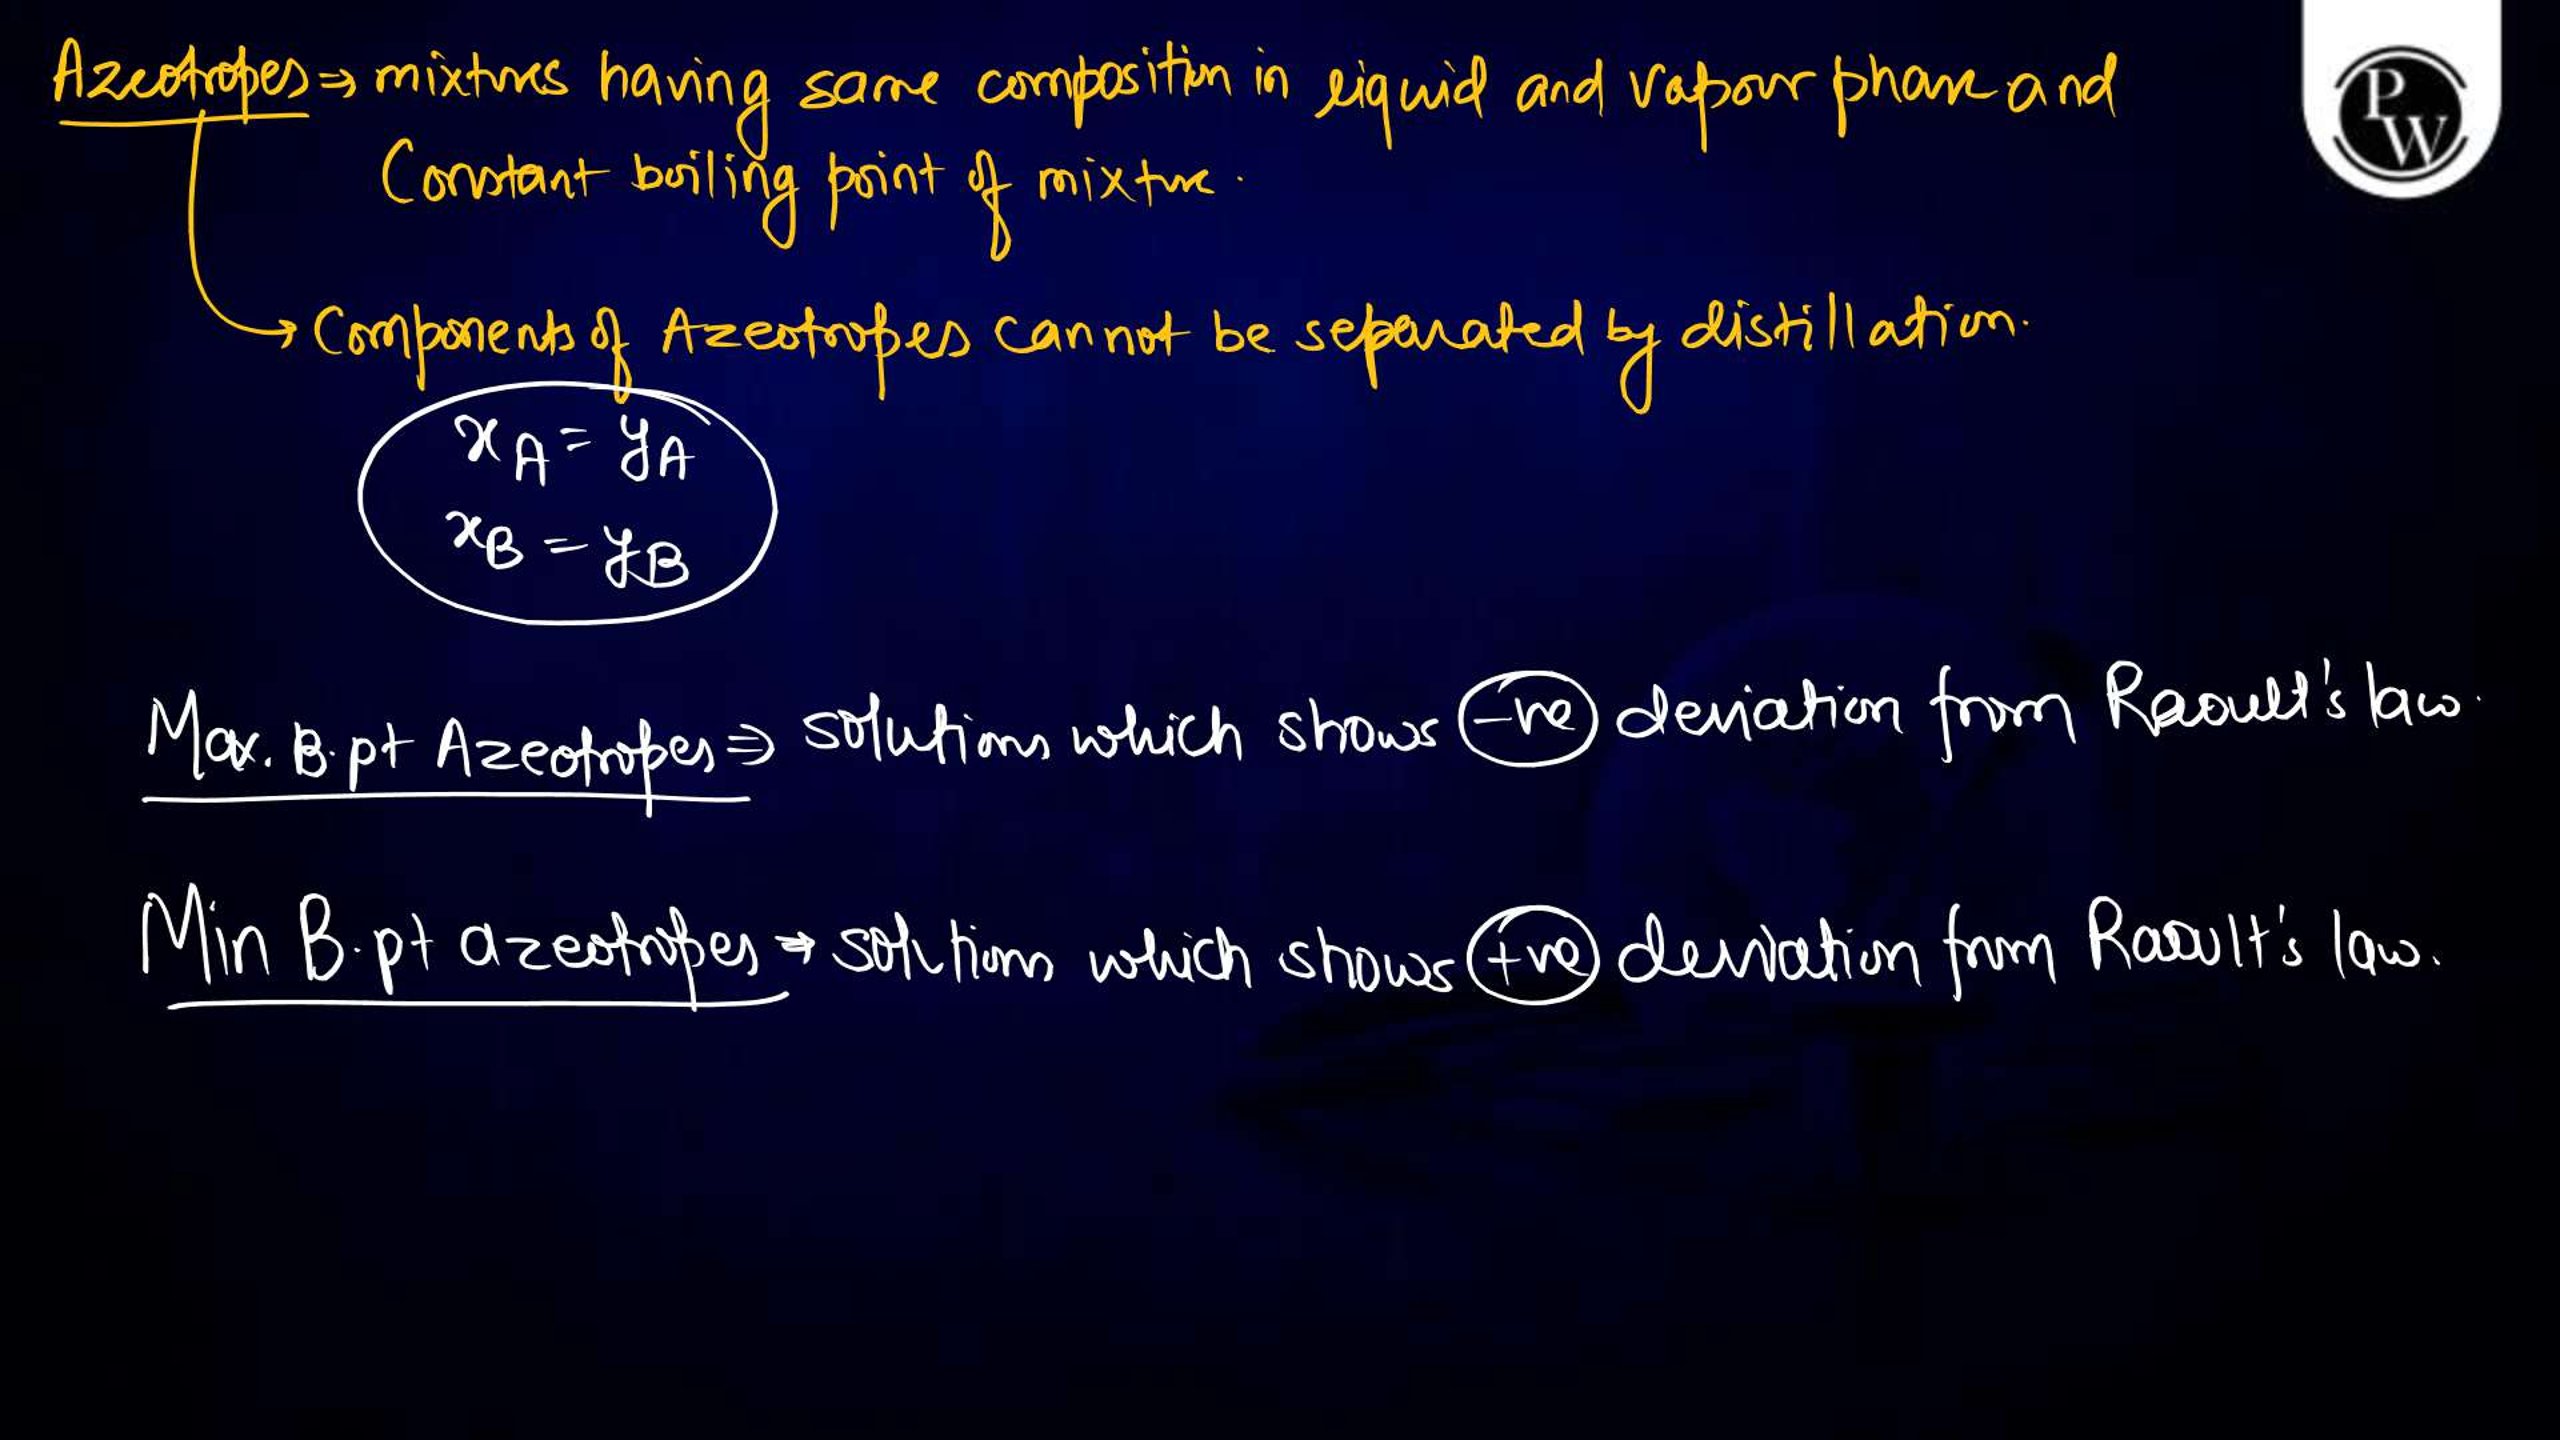 Azeotropes ⇒ mixtures having same composition in liquid and vapour phase and
Constant boiling point of mixture.
→ Components of Azeotropes cannot be separated by distillation.
xA = yA
xB = yB
Max. B.pt Azeotropes ⇒ solutions which shows -ve deviation from Raoult's law.
Min B.pt azeotropes → solutions which shows +ve deviation from Raoult's law.
PW